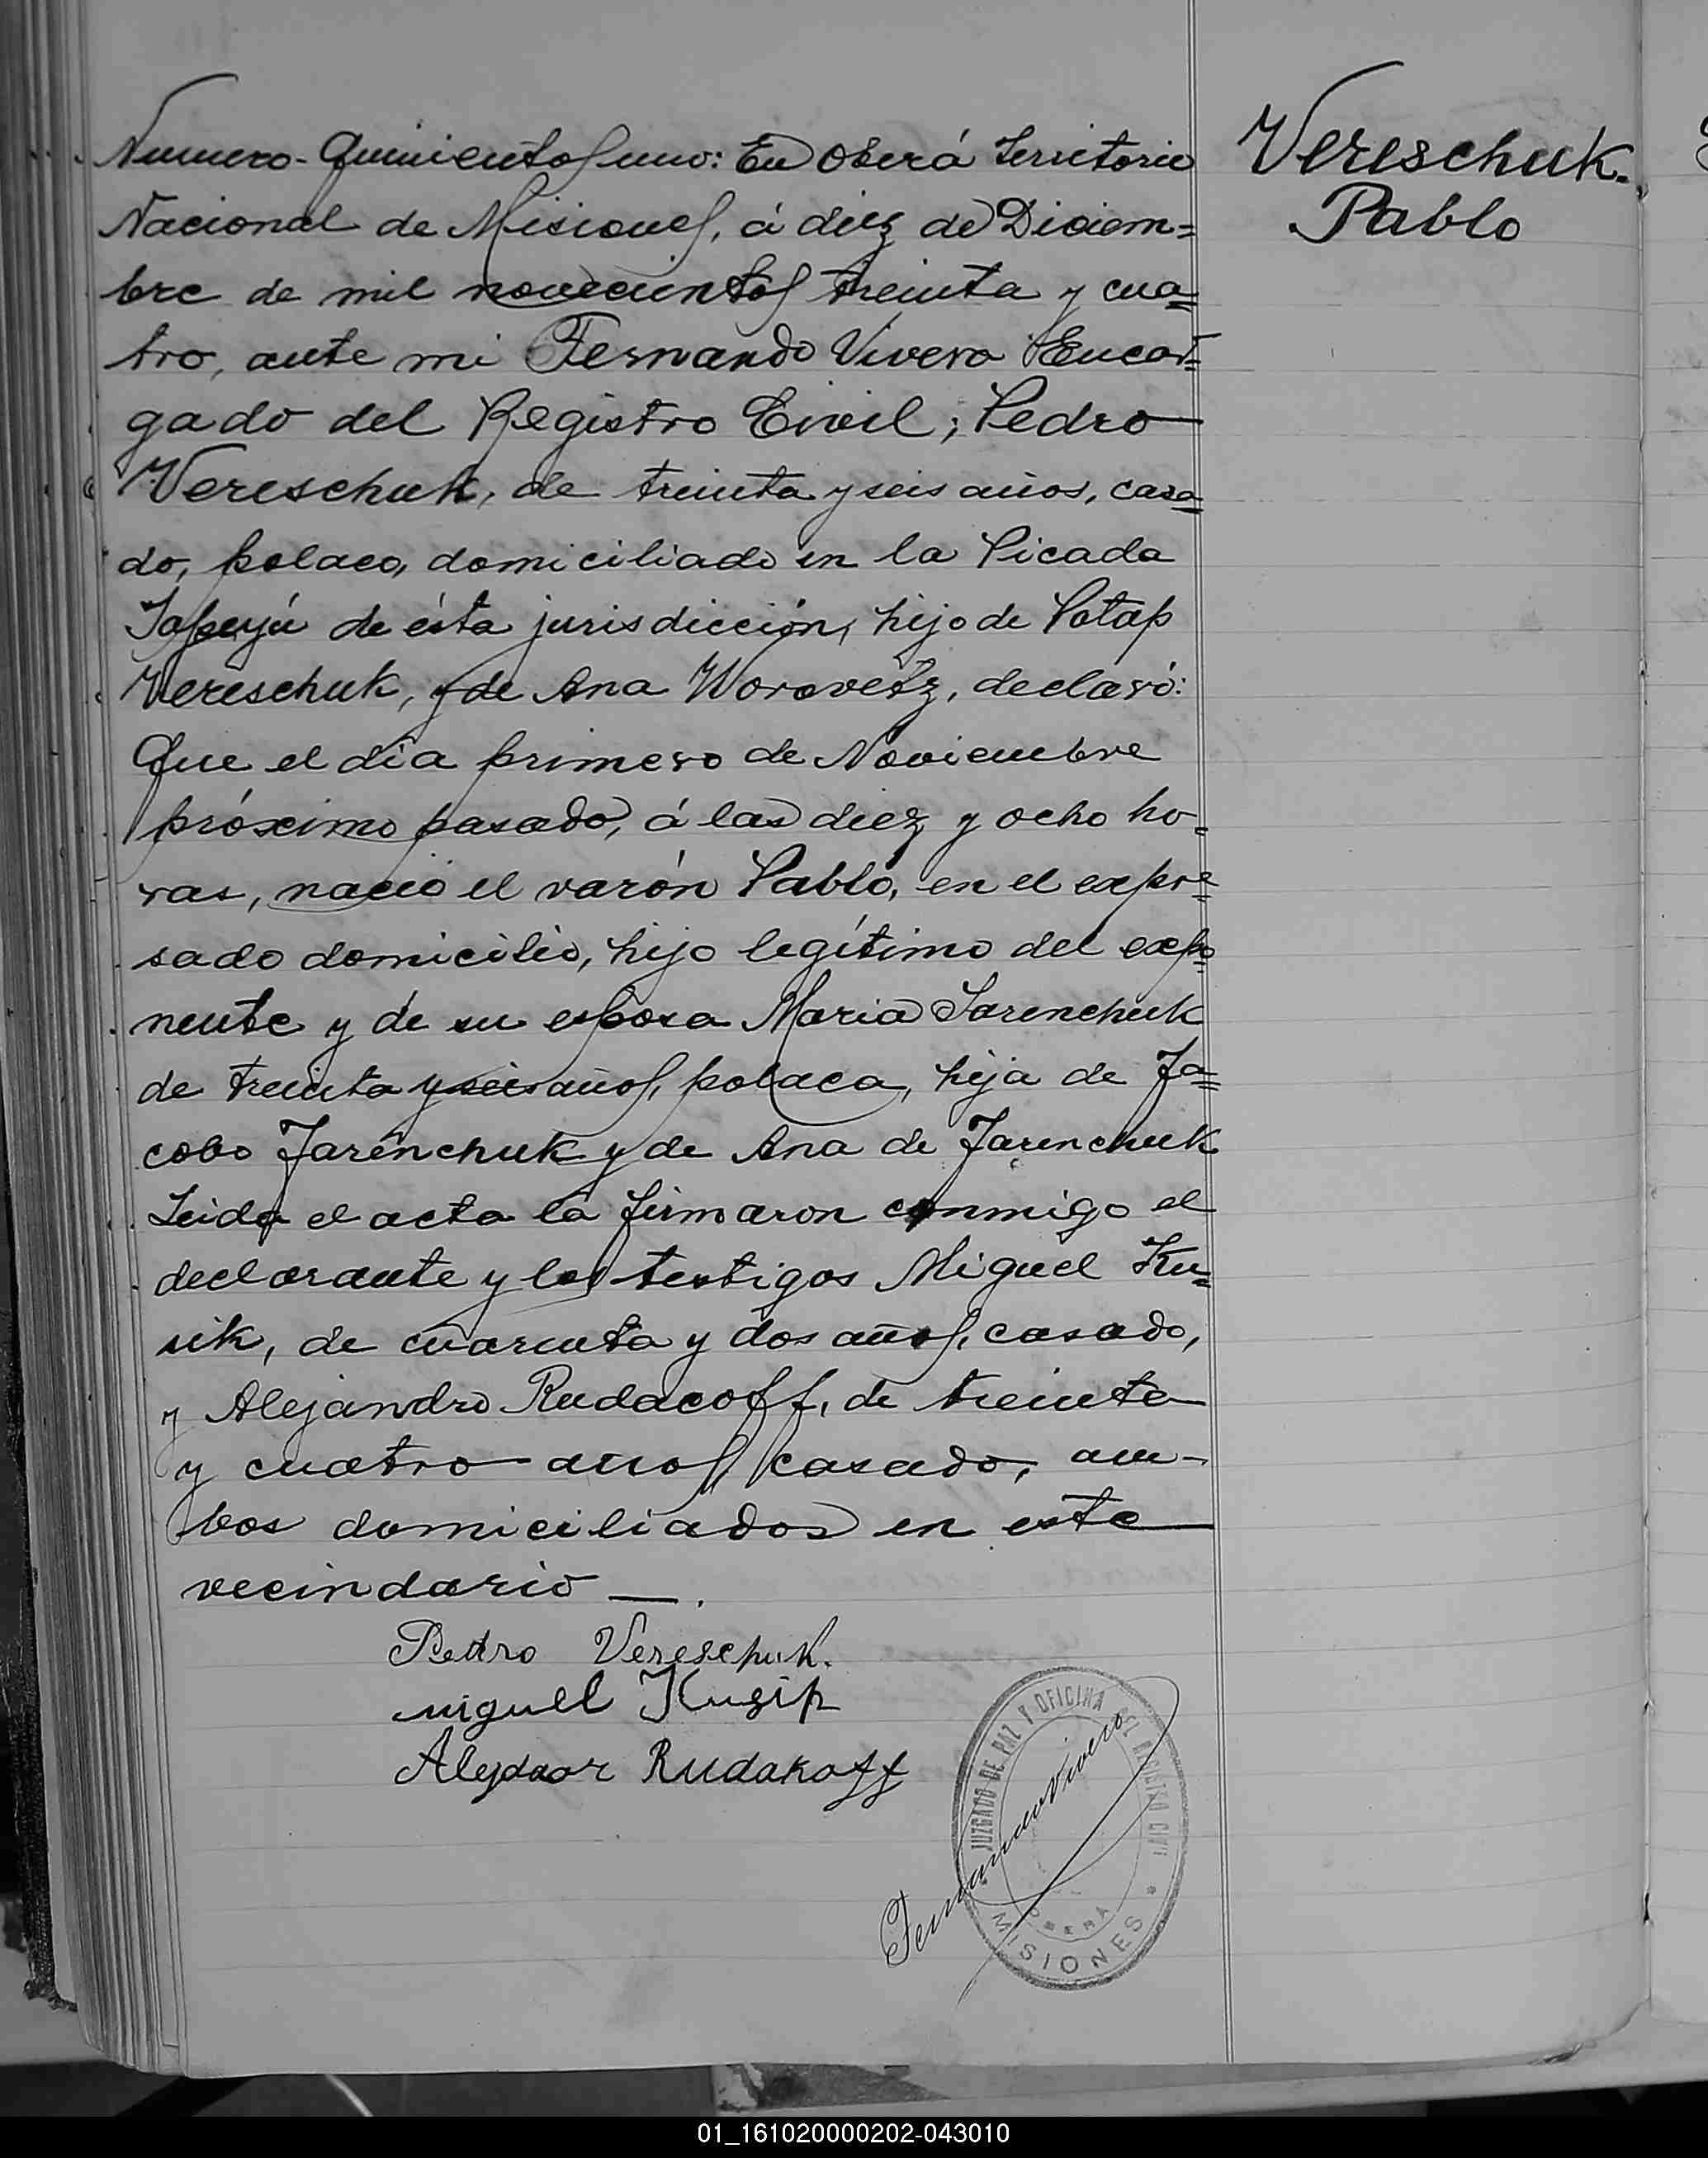 Numero Quinientos uno: En Oberá Territorio
Nacional de Misiones, á diez de Diciem=
bre de mil novecientos treinta y cua=
tro, ante mi Fernando Vivero Encar=
gado del Registro Civil; Pedro
Vereschuk, de treinta y seis años, casa=
do, polaco, domiciliado en la Picada
Yapeyú de ésta jurisdicción, hijo de Potap
Vereschuk, y de Ana Worovetz, declaró:
Que el día primero de Noviembre
próximo pasado, á las diez y ocho ho=
ras, nació el varón Pablo, en el expre=
sado domicilio, hijo legítimo del expo=
nente y de su esposa Maria Jarenchuk
de treinta y seis años, polaca, hija de Ja=
cobo Jarenchuk y de Ana de Jarenchuk
Leida el acta la firmaron conmigo el
declarante y los testigos Miguel Ku=
sik, de cuarenta y dos años, casado,
y Alejandro Rudacoff, de treinta
y cuatro años, casado, am-
bos domiciliados en este
vecindario —.
Pedro Vereschuk.
miguel Kusik
Rudakoff
Fernando Vivero
JUZGADO DE PAZ Y OFICINA DEL REGISTRO CIVIL
OBERÁ
MISIONES
Vereschuk.
Pablo
01_161020000202-043010